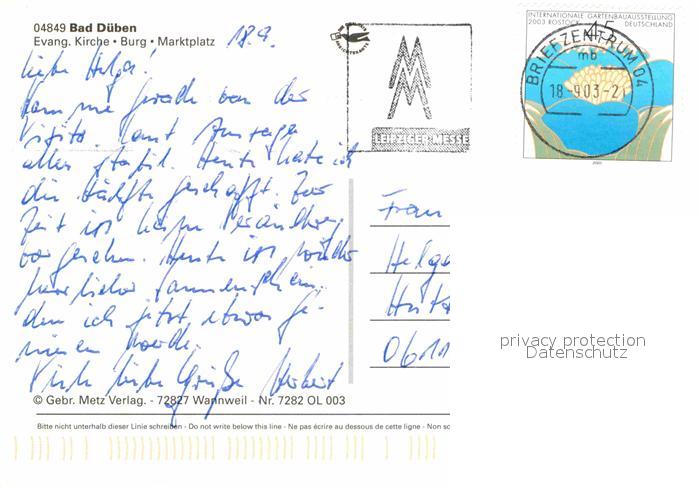 04849 Bad Düben
Evang. Kirche • Burg • Marktplatz
18.9.
Liebe Helga!
komme gerade von der
Visite. Laut Aussage
alles stabil. Heute habe ich
die Hälfte geschafft. Zur
Zeit ist keine Veränderung
vorgesehen. Heute ist wieder
herrlicher Sonnenschein.
den ich jetzt etwas ge-
niesen werde.
Viele liebe Grüße Herbert
© Gebr. Metz Verlag. - 72827 Wannweil - Nr. 7282 OL 003
Bitte nicht unterhalb dieser Linie schreiben - Do not write below this line - Ne pas écrire au dessous de cette ligne - Non sc
LEIPZIGER MESSE
INTERNATIONALE GARTENBAUAUSSTELLUNG
2003 ROSTOCK 45 DEUTSCHLAND
BRIEFZENTRUM 04
mb
18-9.03-21
Frau
Helga
0611
privacy protection
Datenschutz